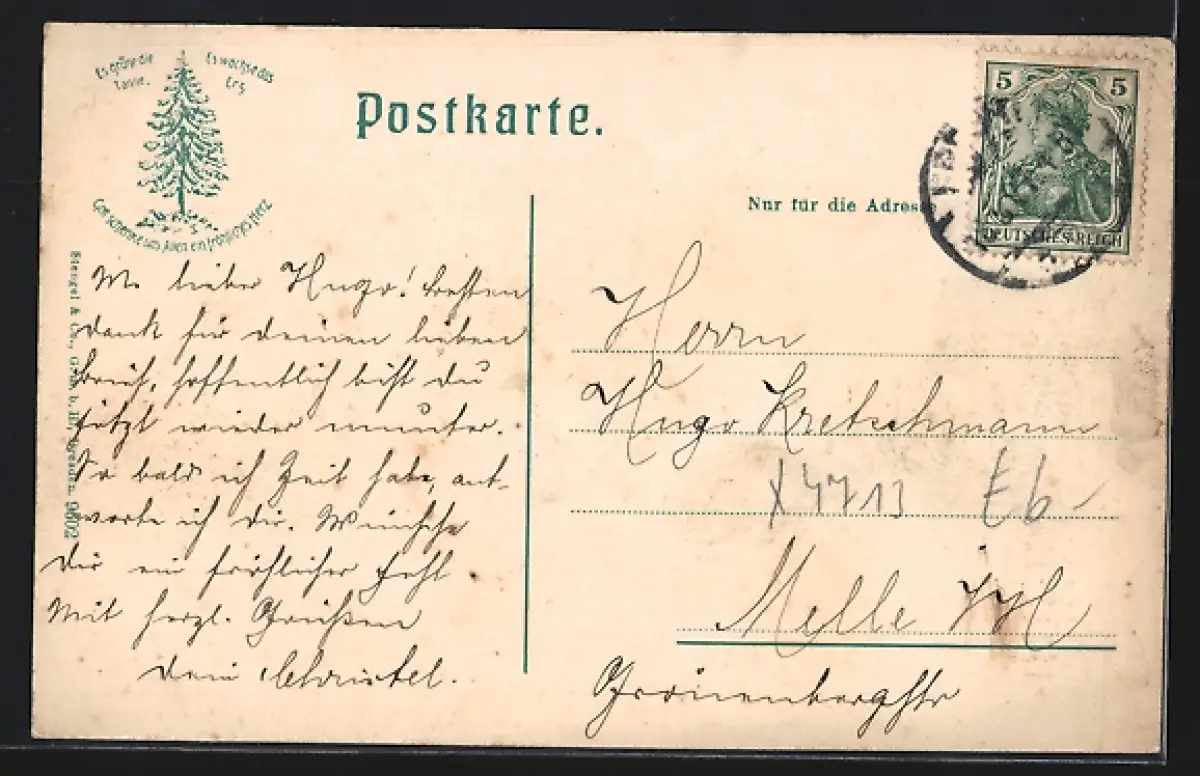 Es grüne die
Tanne.
Es wachse das
Erz
Gott schenke uns Allen ein fröhliches Herz
Postkarte.
Nur für die Adresse
5 5
DEUTSCHES REICH
Stengel & Co., G.m.b.H., Dresden 9602
M. lieber Hugo! besten
Dank für deinen lieben
Brief, hoffentlich bist du
jetzt wieder munter.
So bald ich Zeit habe, ant-
worte ich dir. Wünsche
dir ein fröhliches Fest
Mit herzl. Grüßen
dein Christel.
Herrn
Hugo Kretschmann
X4713 Eb-
Melle
Grönenbergstr